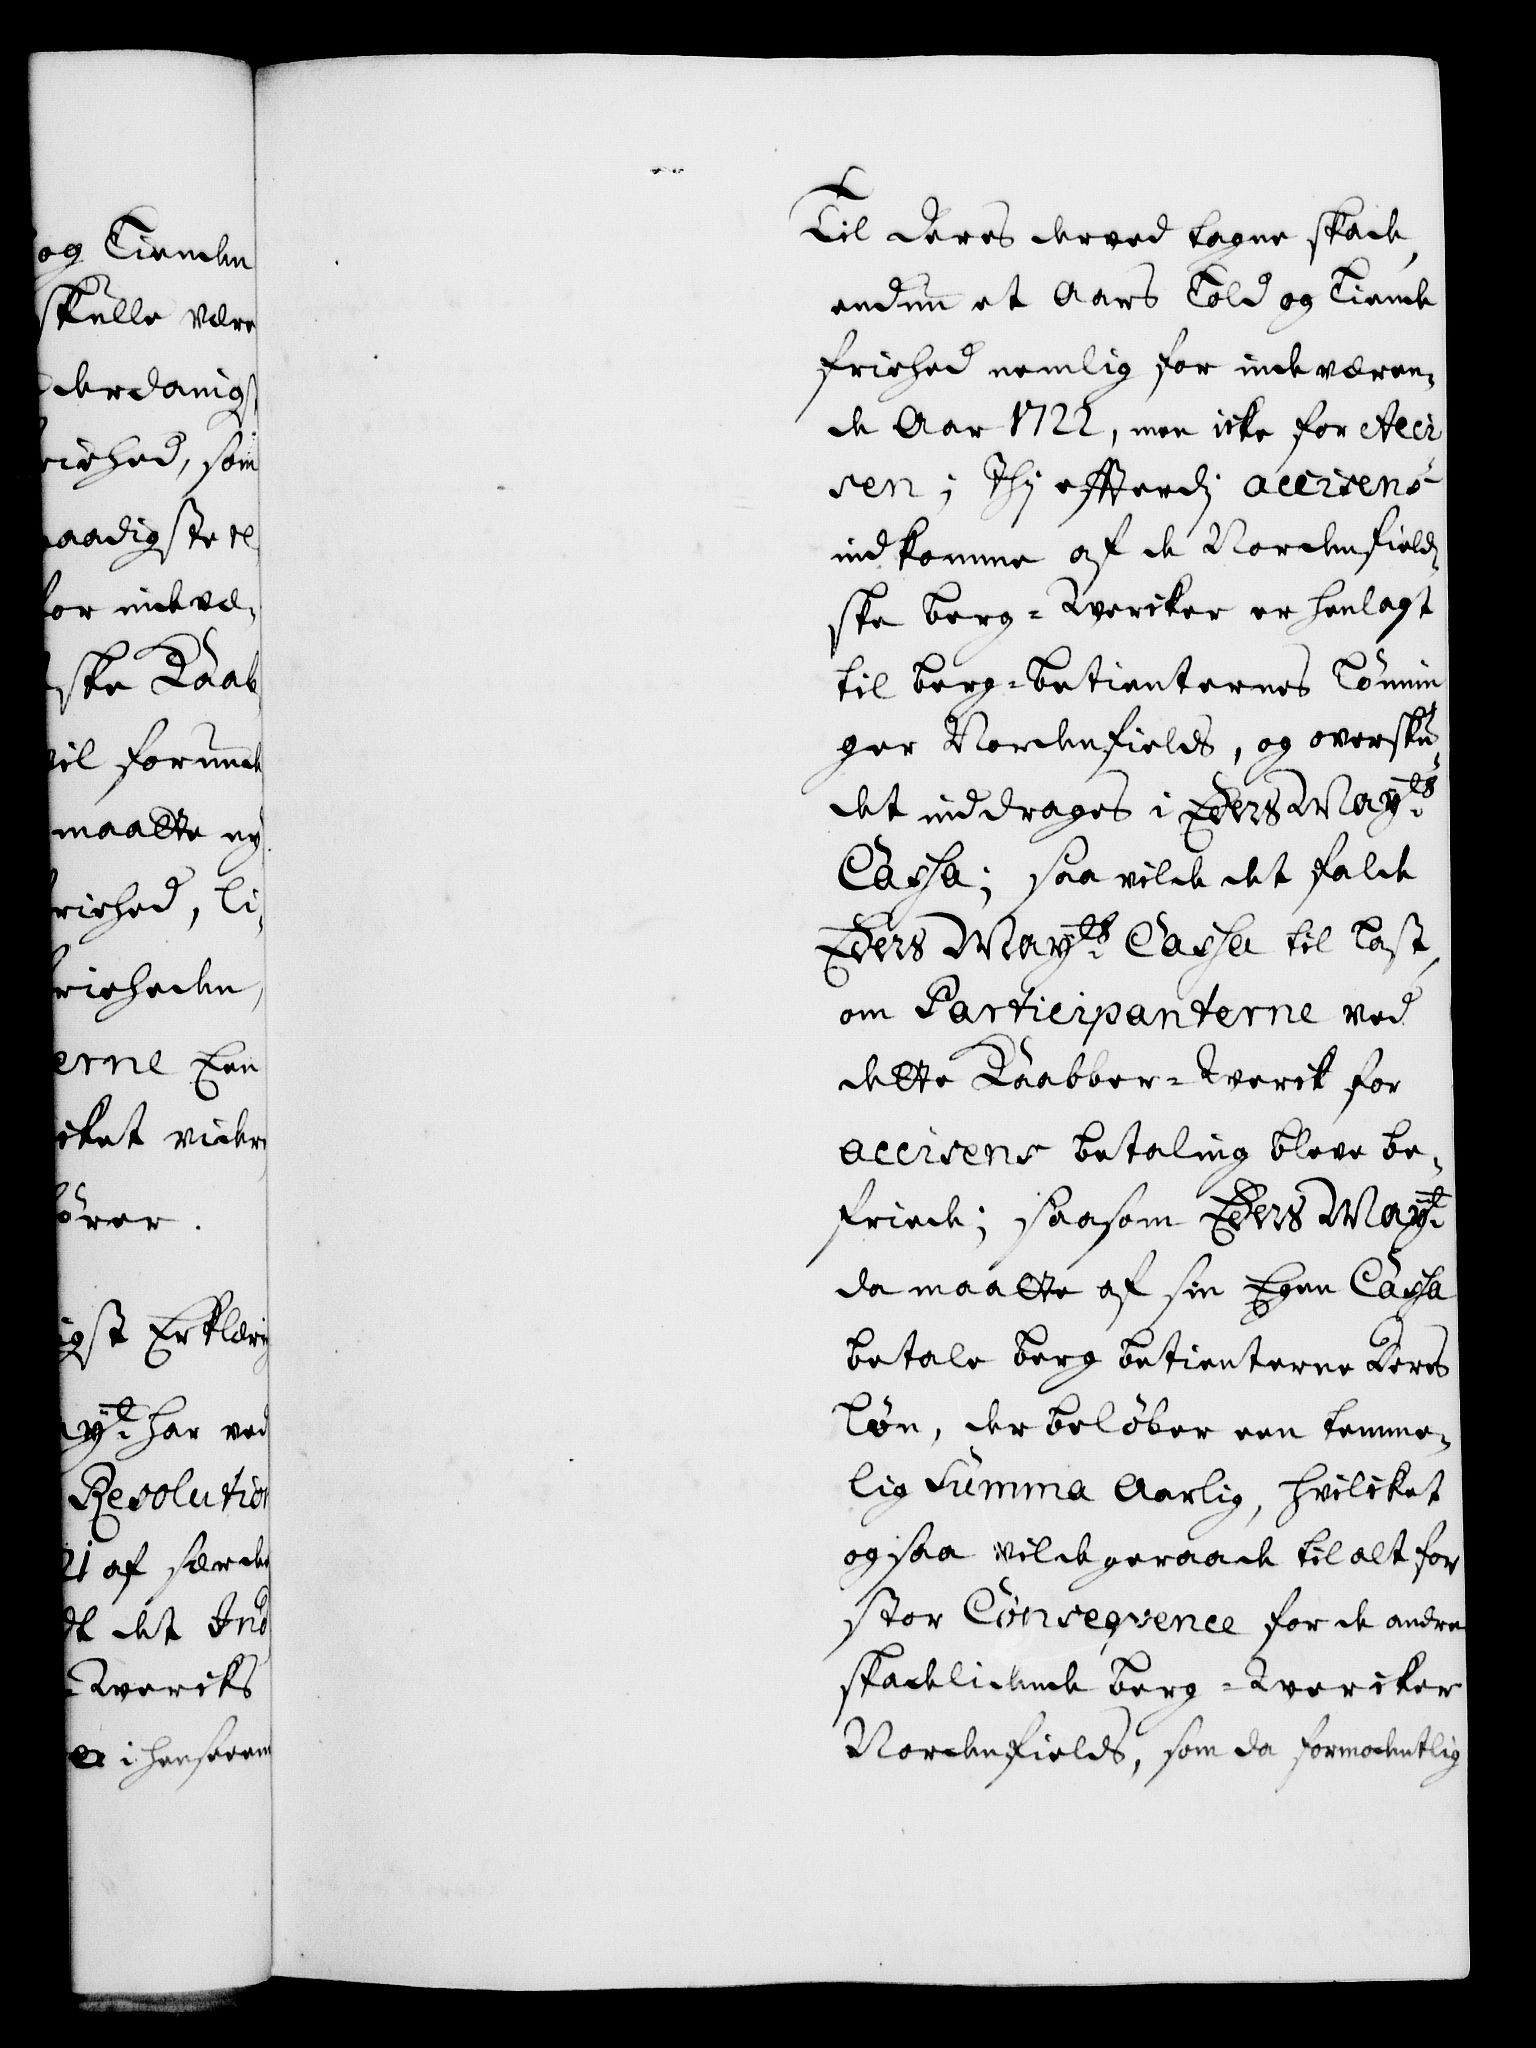 og Tienden
skulle være
derdanigst
riehed, som
naadigste re
for indevæ-
ske Kaab
vil forunde
maatte ny
friehed, li-
frieheden,
erne Een
cket videre
börer.
igst Erklæring
ayt: har ved
Resolution
21 af særde
det Ind
-Wercks
er i henseen
Til deres derved tagne skade,
endnu et Aars Told og Tiende
friehed nemlig for indeværen-
de Aar 1722, men icke for Acci
sen; Thj efftersom accisens
indkomme af de Nordenfield-
ske berg-Wercker er henlagt
til berg-betienternes Lönnin
ger Nordenfields, og oversku-
det inddrages i Eders May:ts
Cassa; saa vilde det falde
Eders May:ts Cassa til last,
om Participanterne ved
dette Kaabber-Werck for
accisens betaling bleve be-
friede; saasom Eders May:t
da maatte af sin Egen Cassa
betale berg betienterne deres
Lön, der belöber een temme-
lig Summa Aarlig, hvilcket
og saa vilde geraade til alt for
stor Conseqvence for de andre
skadelidende berg-Wercker
Nordenfields, som da formodentlig